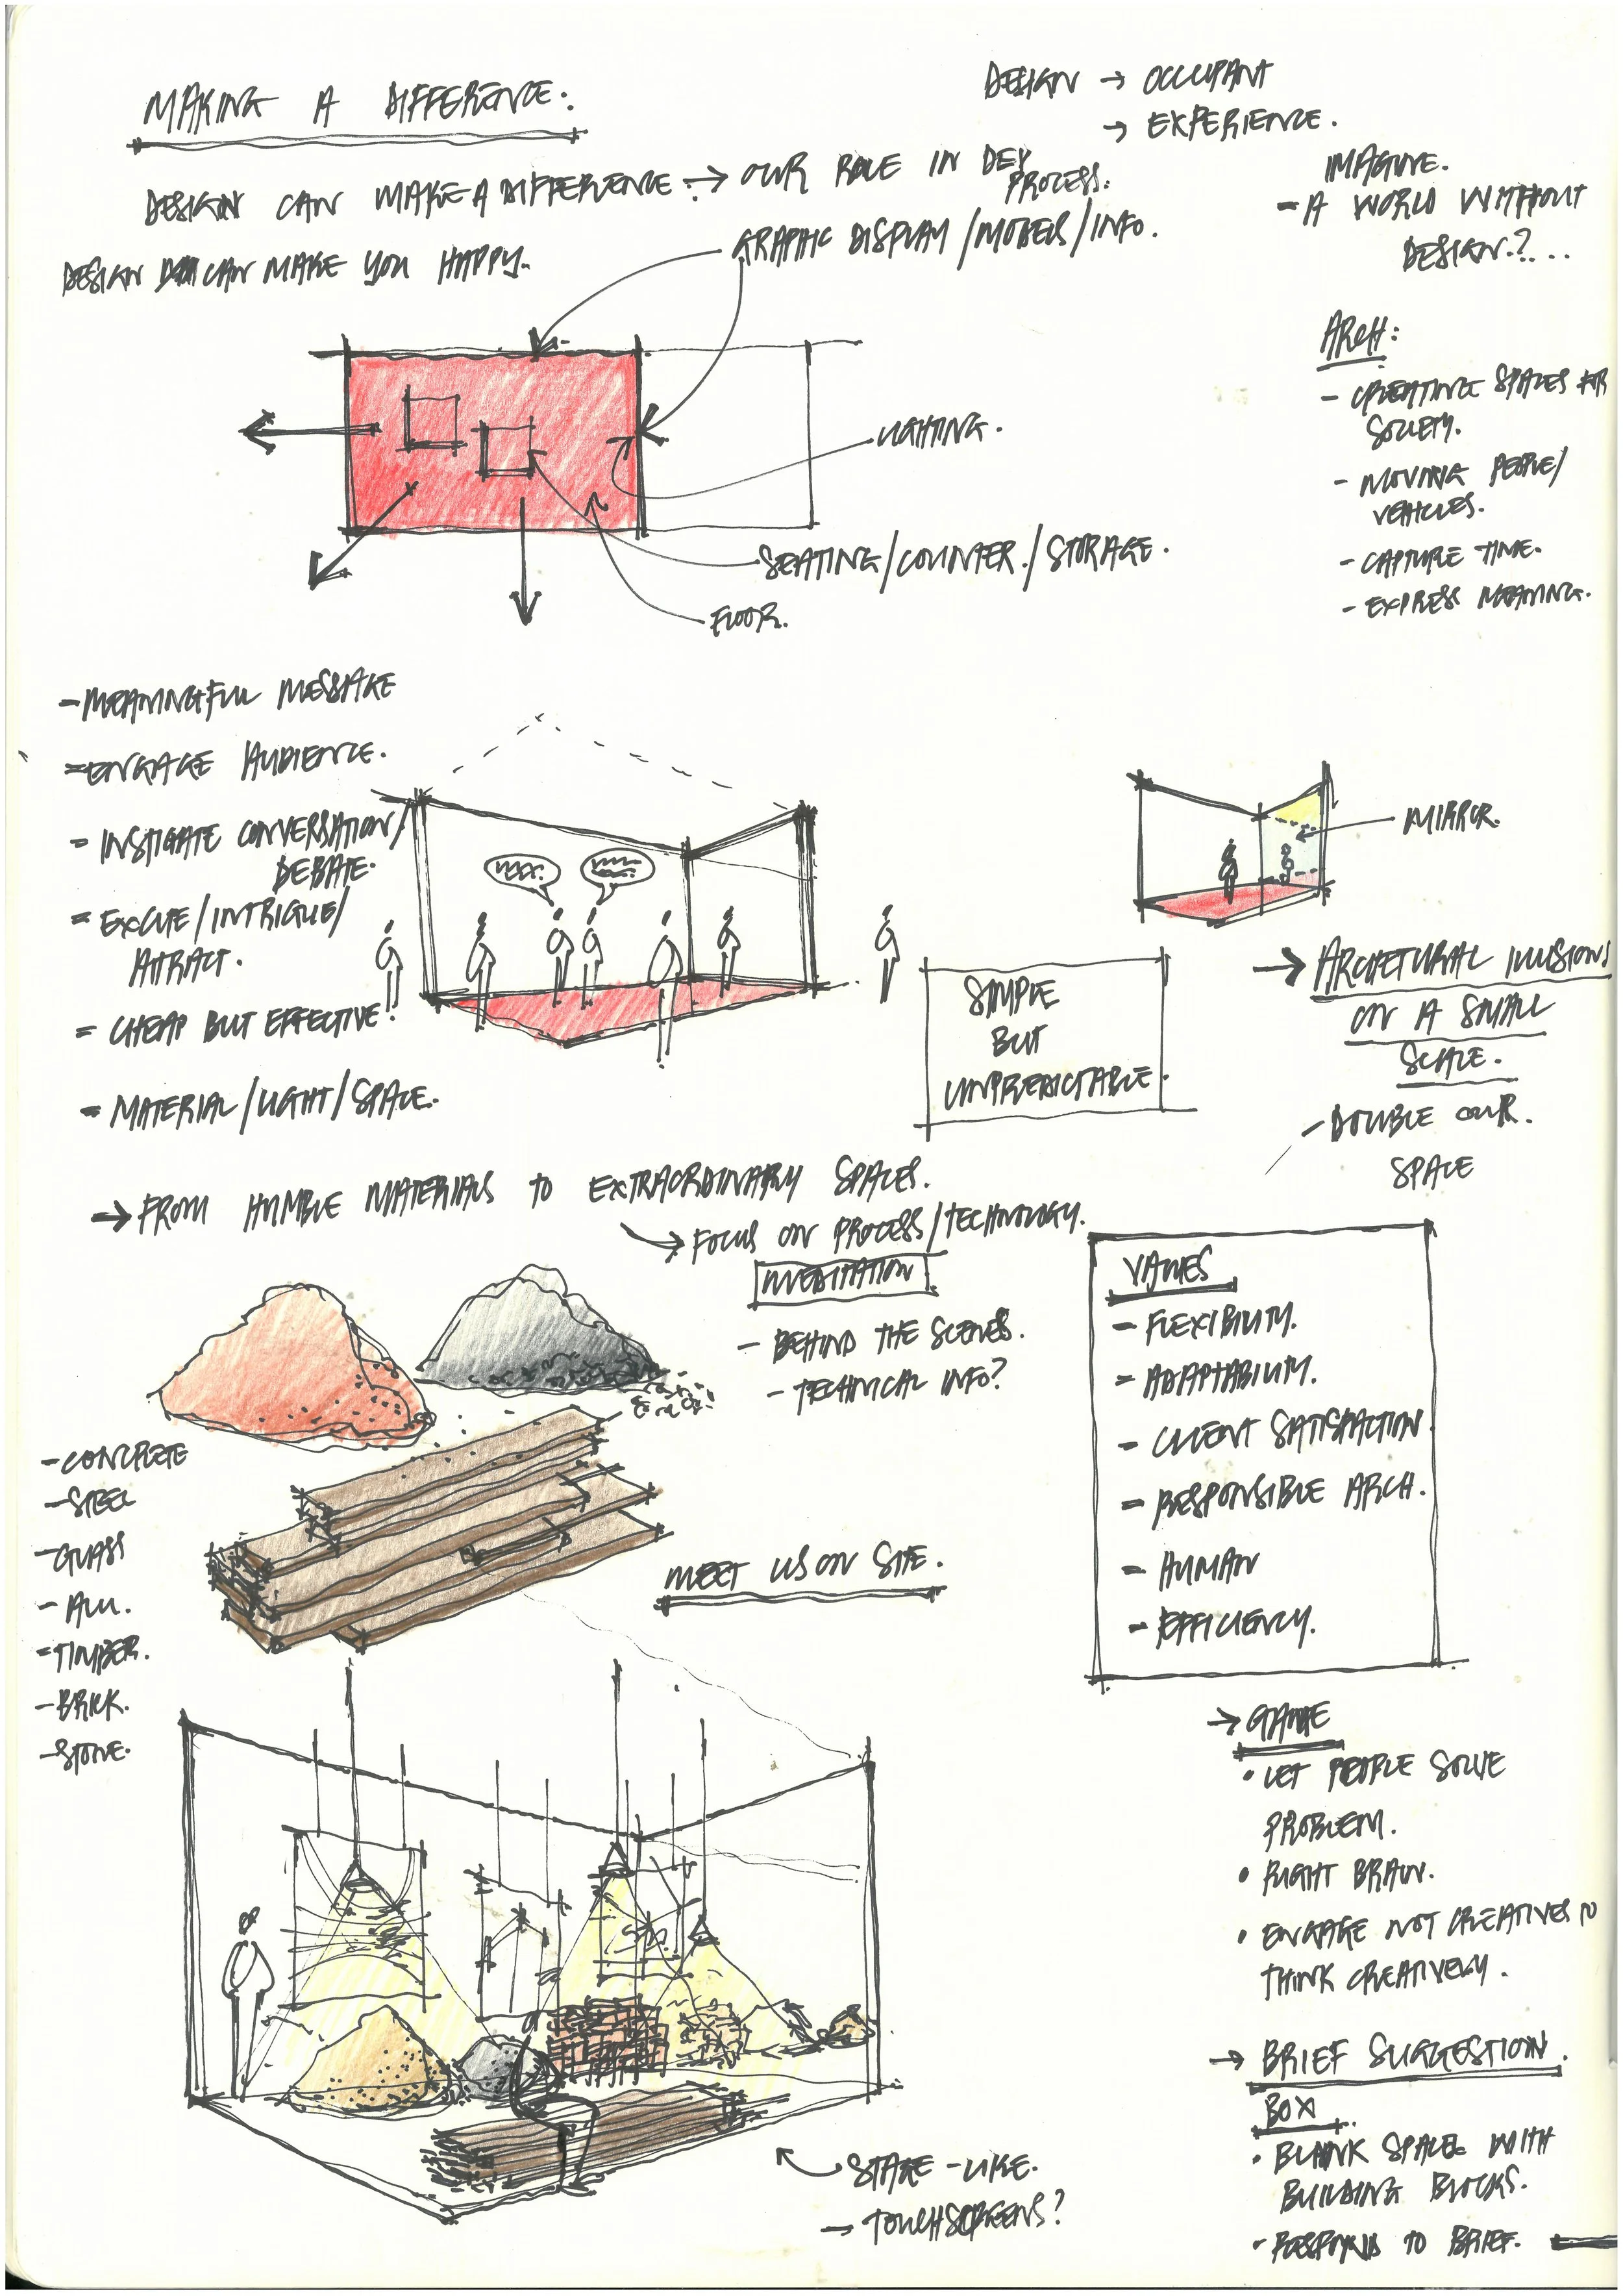 MAKING A DIFFERENCE:
DESIGN → OCCUPANT
→ EXPERIENCE.
DESIGN CAN MAKE A DIFFERENCE: → OUR ROLE IN DEV
PROCESS:
IMAGINE.
- A WORLD WITHOUT
DESIGN?...
DESIGN CAN MAKE YOU HAPPY.
GRAPHIC DISPLAY / MODELS / INFO.
ARCH:
- CREATING SPACES FOR
SOCIETY.
- MOVING PEOPLE/
VEHICLES.
- CAPTURE TIME.
- EXPRESS MEANING.
LIGHTING.
SEATING / COUNTER / STORAGE.
FLOOR.
- MEANINGFULL MESSAGE
- ENGAGE AUDIENCE.
- INSTIGATE CONVERSATION/
DEBATE.
- EXCITE / INTRIGUE /
ATTRACT.
- CHEAP BUT EFFECTIVE!
- MATERIAL / LIGHT / SPACE.
MIRROR.
SIMPLE
BUT
UNPREDICTABLE.
→ ARCHETURAL ILLUSIONS
ON A SMALL
SCALE.
- DOUBLE OUR.
SPACE
→ FROM HUMBLE MATERIALS TO EXTRAORDINARY SPACES.
→ FOCUS ON PROCESS / TECHNOLOGY.
- BEHIND THE SCENES.
- TECHNICAL INFO?
VALUES
- FLEXIBILITY.
- ADAPTABILITY.
- CLIENT SATISFACTION
- RESPONSIBLE ARCH.
- HUMAN
- EFFICIENCY.
- CONCRETE
- STEEL
- GLASS
- ALU.
- TIMBER.
- BRICK.
- STONE.
MEET US ON SITE.
→ GAME
• LET PEOPLE SOLVE
PROBLEM.
• RIGHT BRAIN.
• ENGAGE NOT CREATIVES TO
THINK CREATIVELY.
→ BRIEF SUGGESTION.
BOX
• BLANK SPACE WITH
BUILDING BLOCKS.
- RESPOND TO BRIEF.
STAGE-LIKE.
→ TOUCHSCREENS?